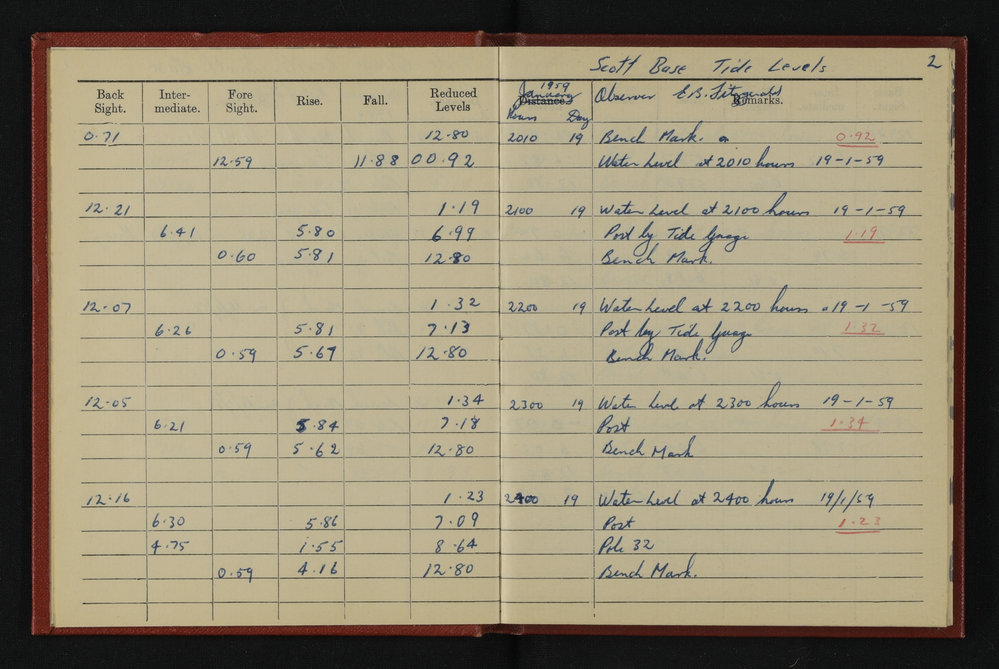 Scott Base Tide Levels 2
Back Sight. Inter-mediate. Fore Sight. Rise. Fall. Reduced Levels 1959 January Distance. Observer E.B. Fitzgerald Remarks.
Hours Day
0.71 12.80 2010 19 Bench Mark. 0.92
12.59 11.88 00.92 Water Level at 2010 hours 19-1-59
12.21 1.19 2100 19 Water Level at 2100 hours 19-1-59
6.41 5.80 6.99 Post by Tide Guage 1.19
0.60 5.81 12.80 Bench Mark.
12.07 1.32 2200 19 Water Level at 2200 hours 19-1-59
6.26 5.81 7.13 Post by Tide Guage 1.32
0.59 5.67 12.80 Bench Mark.
12.05 1.34 2300 19 Water Level at 2300 hours 19-1-59
6.21 5.84 7.18 Post 1.34
0.59 5.62 12.80 Bench Mark
12.16 1.23 2400 19 Water Level at 2400 hours 19/1/59
6.30 5.86 7.09 Post 1.23
4.75 1.55 8.64 Pole 32
0.59 4.16 12.80 Bench Mark.